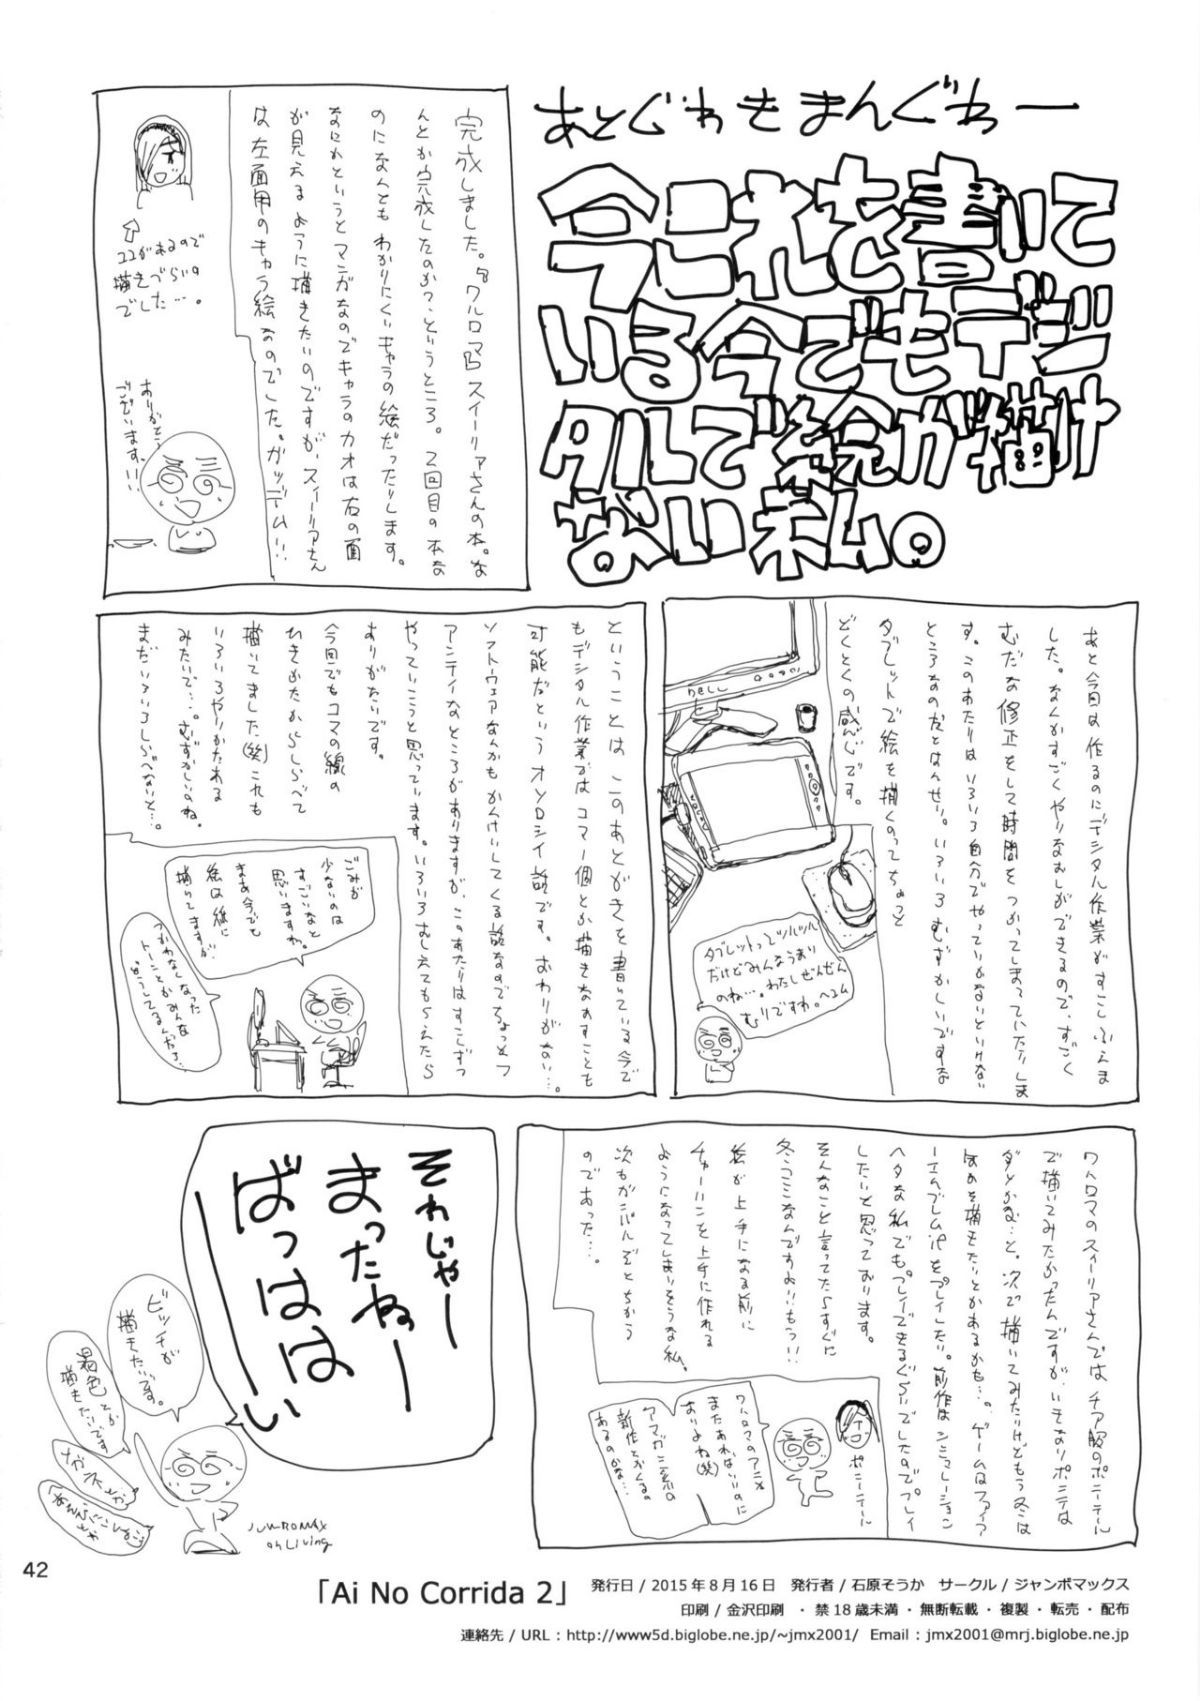 あとぐわきまんぐわー
今これを書いて
いる今でもデジ
タルで絵が描け
ない私。
完成しました。『ワルロマ』スイーリアさんの本。な
んとか完成したのかっというところ。2回目の本な
のになんともわかりにくいキャラの絵だったりします。
なにかというとマンガなのでキャラのカオは右の面
が見えるように描きたいのですが、スイーリアさん
は左面用のキャラ絵なのでした。ガッデム!!
⇧
ココがあるので
描きづらいの
でした…。
ありがとう
ございます。!!
あと今回は作るのにデジタル作業がすこしふえま
した。なんかすごくやりなおしができるので、すごく
むだな修正をして時間をつかってしまっていたりしま
す。このあたりはいろいろ自分でやっていかないといけない
ところなのだとはんせい。いろいろむずかしいですな
タブレットで絵を描くのってちょっと
どくとくの感じです。
DELL
タブレットってツルツル
だけどみんなうまい
のね…。わたしぜんぜん
むりですわ。ヘユム
ということはこのあとがきを書いている今で
もデジタル作業ではコマ一個とか描きなおすことも
可能だというオソロシイ話です。おわりがない…。
ソフトウェアなんかもかんけいしてくる話なのでちょっとフ
アンテイなところがありますが、このあたりはすこしずつ
やっていこうと思っています。いろいろおしえてもらえたら
ありがたいです。
今回でもコマの線の
ひきかたからしらべて
描いてました(笑)これも
いろいろやりかたある
みたいで…。むずかしいのね。
まだいろいろしらべないと…。
ごみが
少ないのは
すごいなと
思いますわ。
まあ今でも
絵は紙に
描いてますが
つかわなくなった
トーンとかみんな
どうしてるんだろ…
ワルロマのスイーリアさんではチア服のポニーテール
で描いてみたかったんですが、いきなりポニテは
ダメかな…と。次で描いてみたいけどもう冬は
なのを描きたいとかあるかも…。ゲームはファイア
ーエムブレムifをプレイしたい。前作はシミュレーション
ヘタな私でもプレイできるぐらいでしたのでプレイ
したいと思っております。
そんなこと言ってたらすぐに
冬コミなんですよ!!もう!!
絵が上手になる前に
チャーハンを上手に作れる
ようになってしまいそうな私。
次もガンバルぞとちかう
のであった…。
ワルロマのアニメ
またあればいいのに
ありよね(笑)
アマガミ系の
新作とかくるの
あるのかな…
ポニーテール
それじゃー
まったねー
ばっははーい
ビッチが
描きたいです。
褐色とか
描きたいです
メガネとか
JUMBOMAX
on Living
42
「Ai No Corrida 2」
発行日 / 2015 年 8 月 16 日　発行者 / 石原そうか　サークル / ジャンボマックス
印刷 / 金沢印刷　・ 禁 18 歳未満 ・ 無断転載 ・ 複製 ・ 転売 ・ 配布
連絡先 / URL : http://www5d.biglobe.ne.jp/~jmx2001/　Email : jmx2001@mrj.biglobe.ne.jp